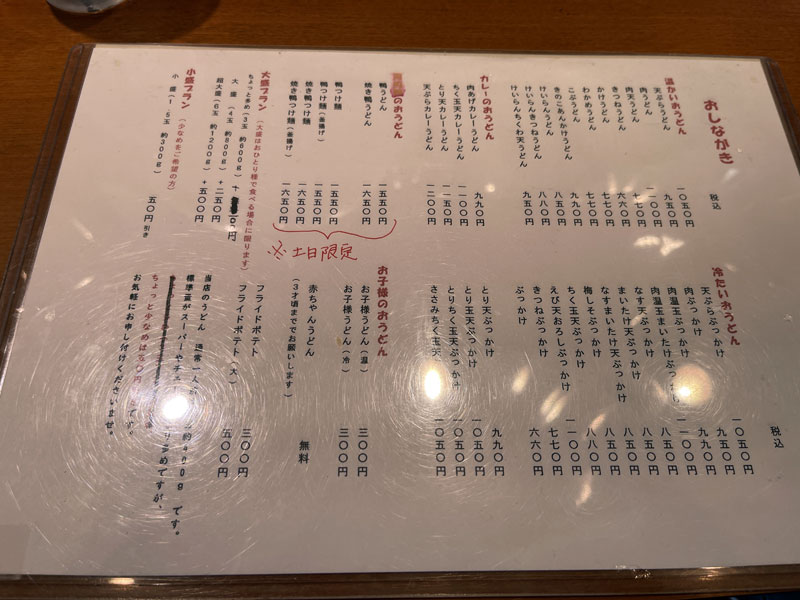 おしながき
税込
温かいおうどん
天ぷらうどん 一〇五〇円
肉うどん 九五〇円
肉天うどん 一一〇〇円
きつねうどん 七七〇円
かけうどん 六六〇円
わかめうどん 七七〇円
こぶうどん 七七〇円
きのこあんかけうどん 九九〇円
けいらんうどん 八五〇円
けいらんきつねうどん 八八〇円
けいらんちくわ天うどん 九五〇円
カレーのおうどん
肉あげカレーうどん 九九〇円
ちく玉天カレーうどん 一一〇〇円
とり天カレーうどん 一一五〇円
天ぷらカレーうどん 一二〇〇円
のおうどん
鴨うどん 一五五〇円
焼き鴨うどん 一六五〇円
鴨つけ麺 一五五〇円
鴨つけ麺(釜揚げ) 一五五〇円
焼き鴨つけ麺 一六五〇円
焼き鴨つけ麺(釜揚げ) 一六五〇円
※土日限定
大盛プラン (大盛はおひとり様で食べる場合に限ります)
ちょっと多め(3玉 約600g) + 〇円
大盛 (4玉 約800g) +二五〇円
超大盛(6玉 約1200g) +五〇〇円
小盛プラン (少なめをご希望の方)
小盛(1.5玉 約300g) 五〇円 引き
税込
冷たいおうどん
天ぷらぶっかけ 一〇五〇円
肉ぶっかけ 九五〇円
肉温玉ぶっかけ 九九〇円
肉温玉まいたけ天ぶっかけ 一一〇〇円
なす天ぶっかけ 八五〇円
まいたけ天ぶっかけ 八五〇円
なすまいたけ天ぶっかけ 八五〇円
梅しそぶっかけ 八八〇円
ちく玉天ぶっかけ 八八〇円
えび天おろしぶっかけ 一一〇〇円
きつねぶっかけ 七七〇円
ぶっかけ 六六〇円
とり天ぶっかけ 九九〇円
とり玉天ぶっかけ 一〇五〇円
とりちく玉天ぶっかけ
ささみちく玉天 一〇五〇円
お子様のおうどん
お子様うどん(温) 三〇〇円
お子様うどん(冷) 三〇〇円
赤ちゃんうどん 無料
(3才頃まででお願いします)
フライドポテト 三〇〇円
フライドポテト(大) 五〇〇円
当店のうどん 通常一人 約400gです。
標準量がスーパーや り多めですが、
ちょっと少なめは 円 です。
お気軽にお申し付けくださいませ。